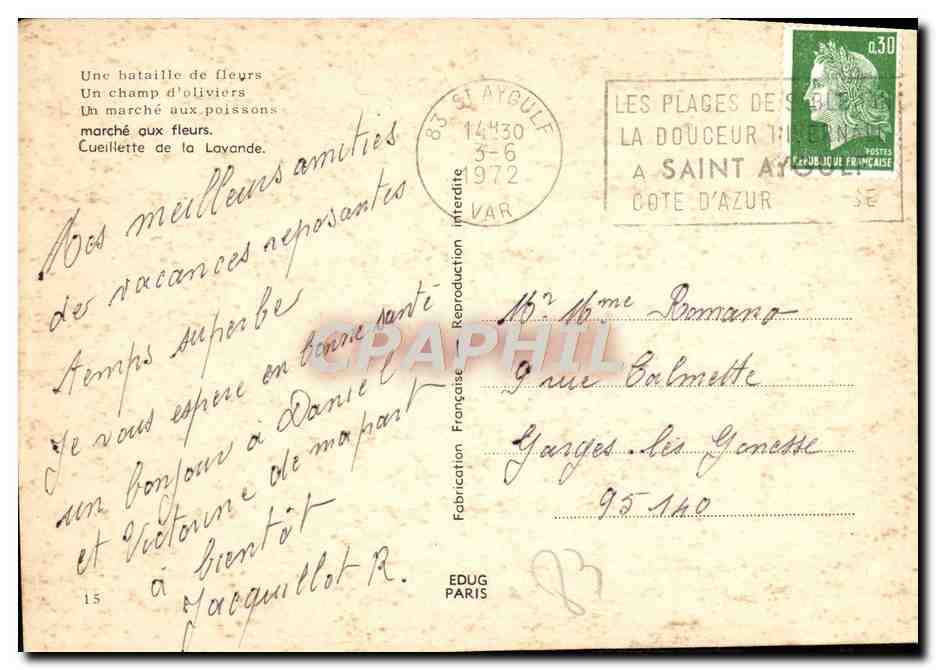 Une bataille de fleurs
Un champ d'oliviers
Un marché aux poissons
marché aux fleurs.
Cueillette de la Lavande.
Mes meilleurs amitiés
de vacances reposantes
temps superbe
Je vous espere en bonne santé
un bonjour à Daniel
et Victorine de mapart
à bientôt
Jacquillot R.
15
83 ST AYGULF
14H30
3-6
1972
VAR
LES PLAGES DE
LA DOUCEUR
A SAINT AYGULF
COTE D'AZUR
0,30
POSTES
REPUBLIQUE FRANÇAISE
Fabrication Française - Reproduction interdite
CPAPHIL
Mr Mme Romano
9 rue Calmette
Garges-lès Gonesse
95140
EDUG
PARIS
83